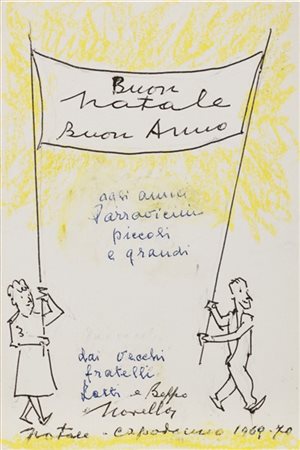 Buon
Natale
Buon Anno
agli amici
Parravicini
piccoli
e grandi
dai vecchi
fratelli
Lotti e Beppo
Novello
Natale - Capodanno 1969-70